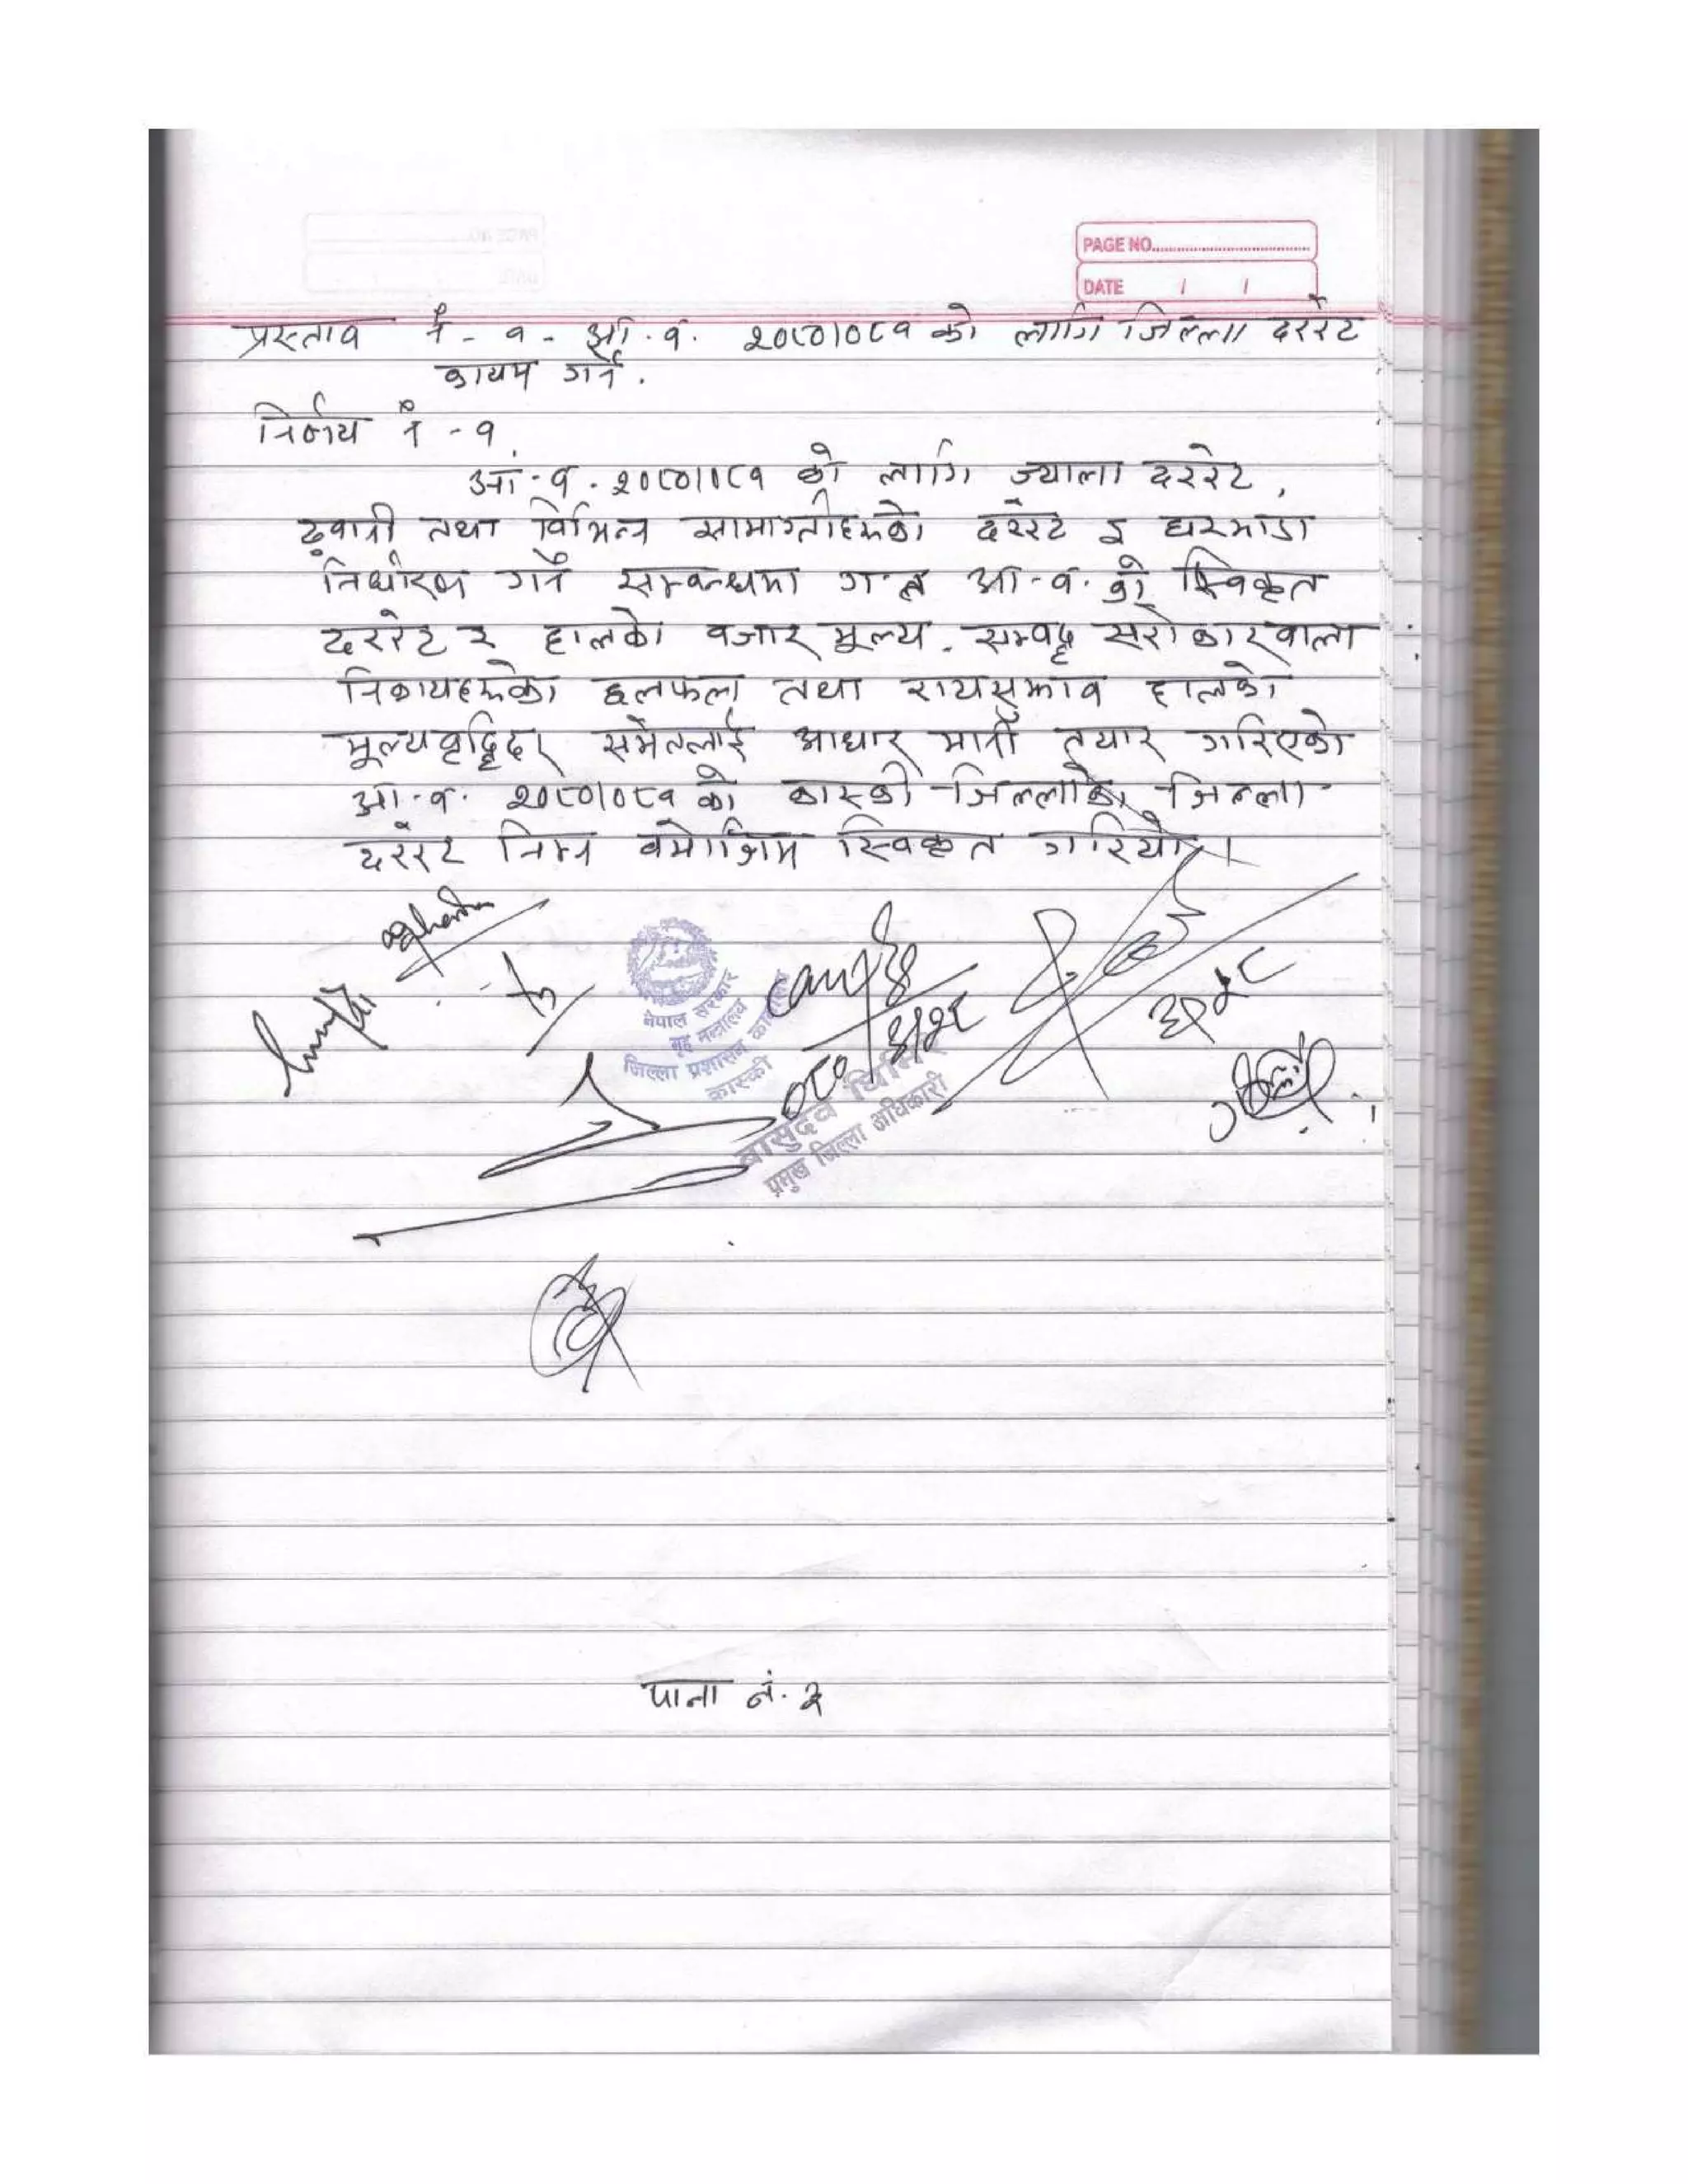 PAGE NO.
DATE / /
प्रस्ताव नं - १ - आ.व. २०८०।०८१ को लागि जिल्ला दररेट
कायम गर्ने .
निर्णय नं - १
आ.व. २०८०।०८१ को लागि ज्याला दररेट,
ढुवानी तथा विभिन्न सामाग्रीहरुको दररेट र घरभाडा
निर्धारण गर्ने सम्बन्धमा गत आ.व. को स्विकृत
दररेट र हालको बजार मूल्य, सम्वद्ध सरोकारवाला
निकायहरुको छलफल तथा रायसुझाव हालको
मूल्यवृद्धिदर समेतलाई आधार मानी तयार गरिएको
आ.व. २०८०।०८१ को कास्की जिल्लाको जिल्ला
दररेट निम्न बमोजिम स्विकृत गरियो।
नेपाल सरकार
गृह मन्त्रालय
जिल्ला प्रशासन कार्यालय
कास्की
वासुदेव
प्रमुख जिल्ला अधिकारी
पाना नं. २